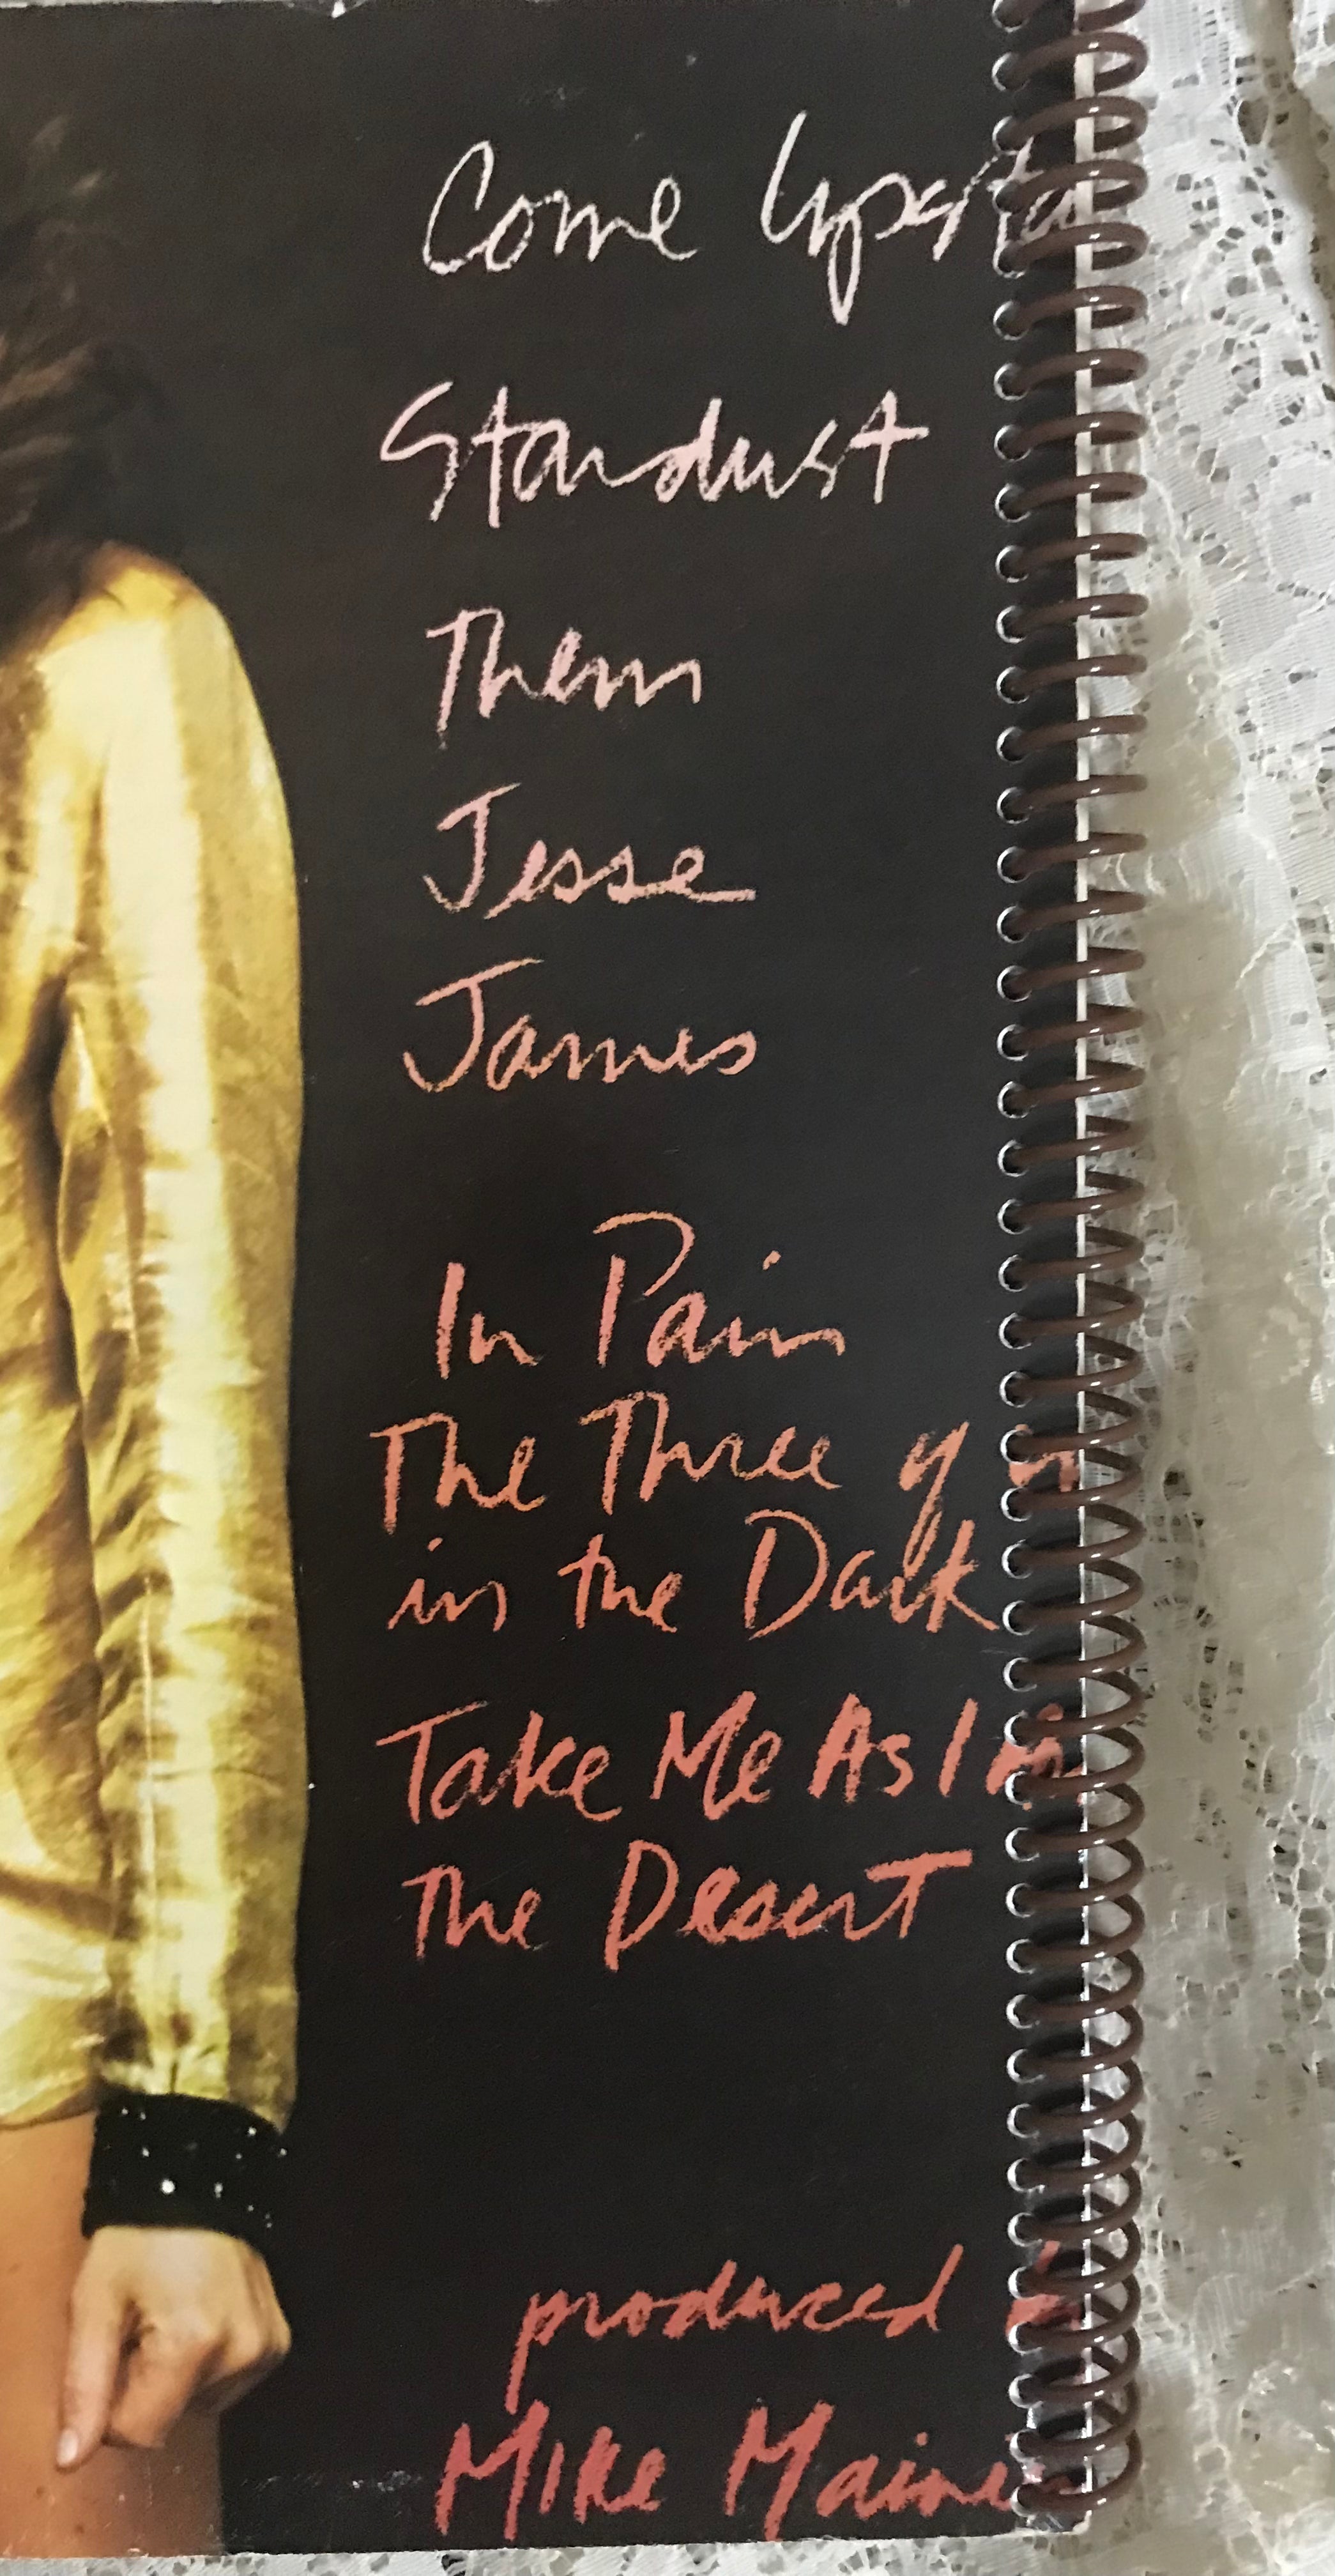 Come
Stardust
Them
Jesse
James
In Pain
The Three of
in the Dark
Take Me As I
The Desert
produced
Mike